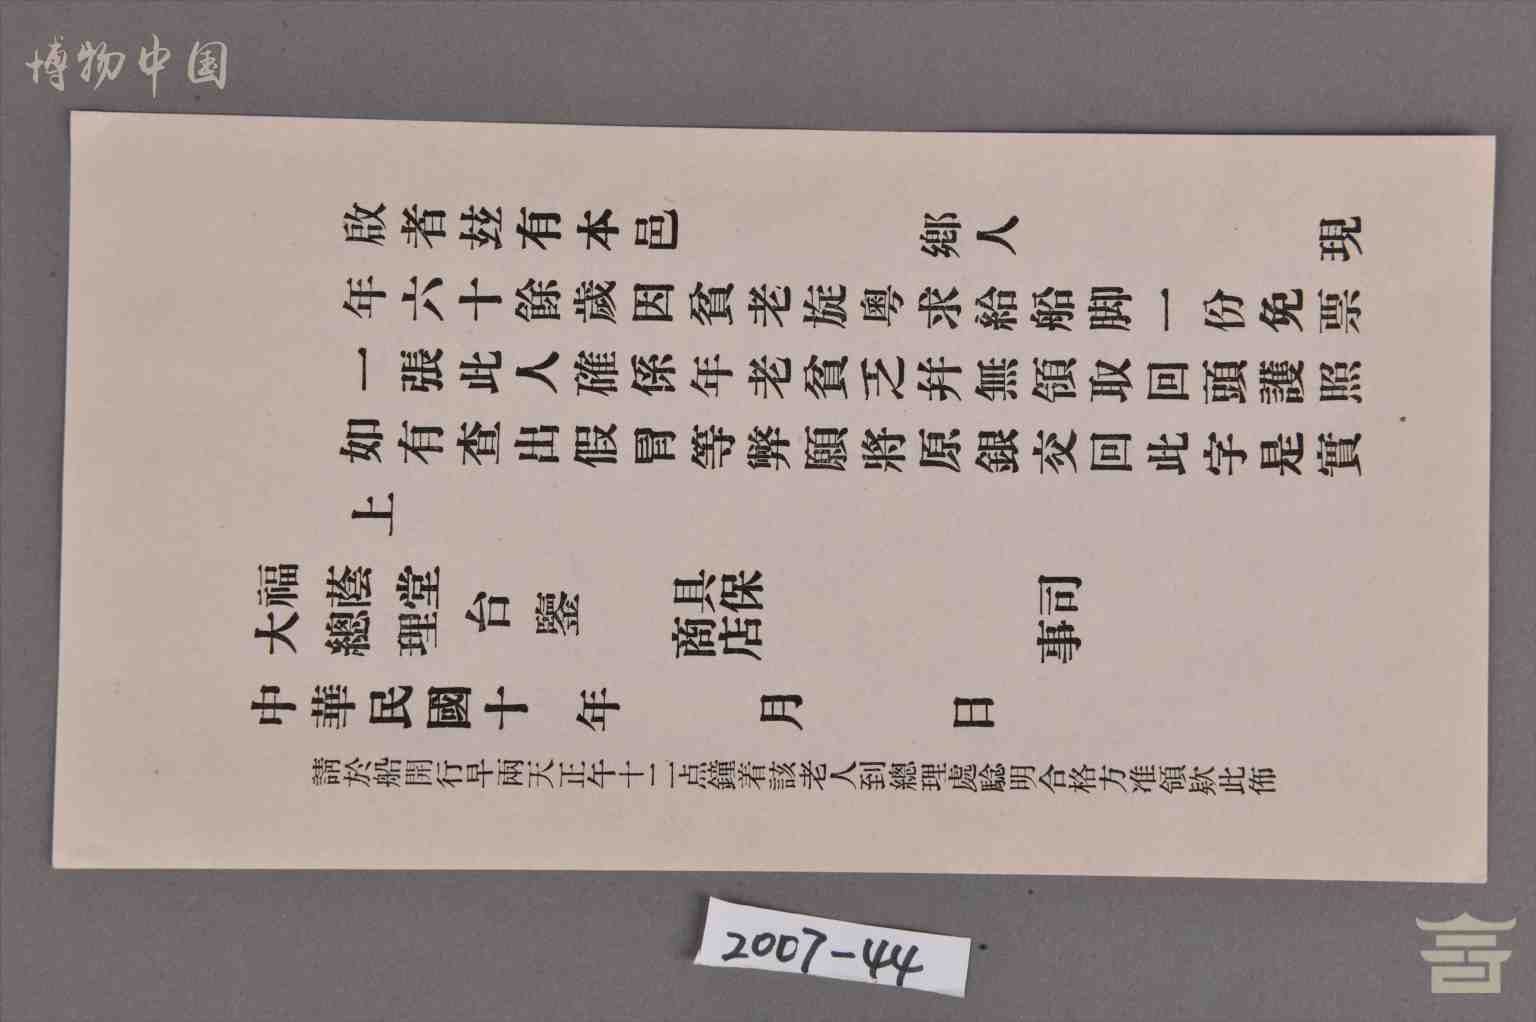 博物中国
啟者茲有本邑 鄉人 現
年六十餘歲因貧老旋粵求給船脚一份免票
一張此人確係年老貧乏幷無領取回頭護照
如有查出假冒等弊願將原銀交回此字是實
上
福蔭堂
大總理
台鑒
具保
商店
司事
中華民國十 年 月 日
請於船開行早兩天正午十二点鐘着該老人到總理處驗明合格方准領欵此佈
2007-44